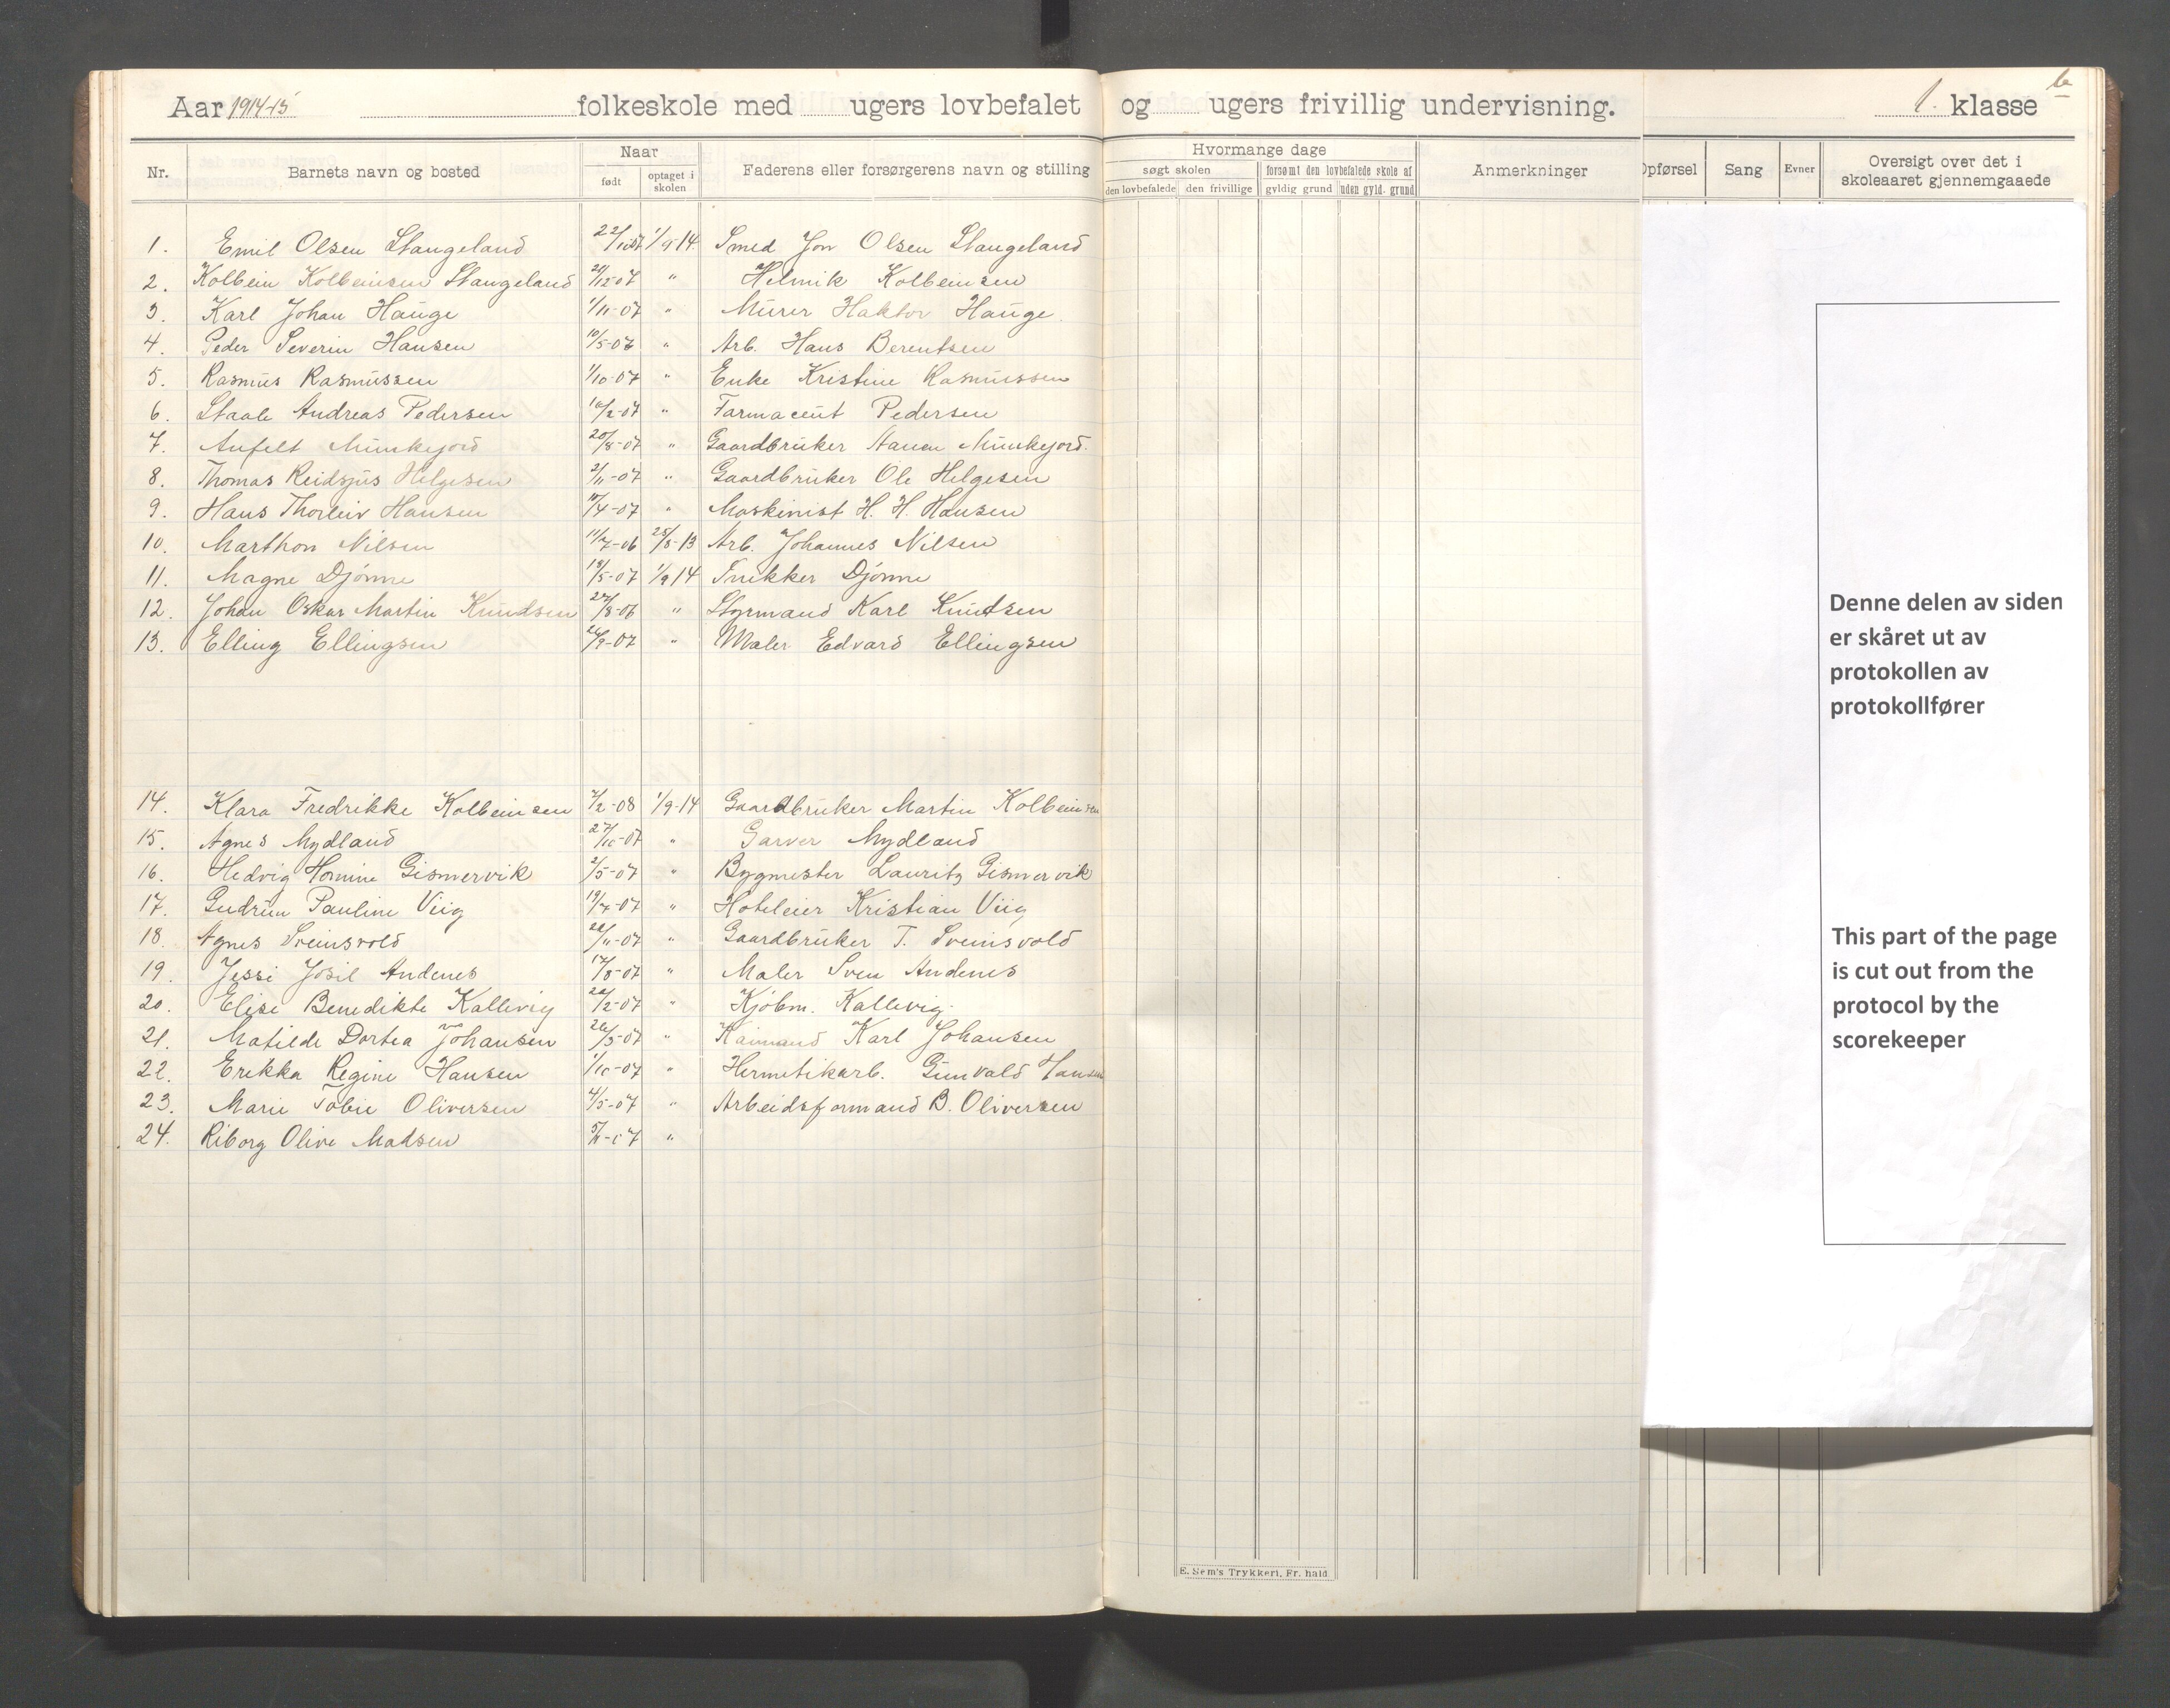 Aar 1914-15 folkeskole med ugers lovbefalet og ugers frivillig undervisning. 1. klasse b
Nr. Barnets navn og bosted Naar født optaget i skolen Faderens eller forsørgerens navn og stilling Hvormange dage søgt skolen den lovbefalede den frivillige forsømt den lovbefalede skole af gyldig grund uden gyld. grund Anmerkninger Opførsel Sang Evner Oversigt over det i skoleaaret gjennemgaaede
1. Emil Olsen Stangeland 1/9 14 Smed Jon Olsen Stangeland
2. Kolbein Kolbeinsen Stangeland 20/12-07 " Helmik Kolbeinsen
3. Karl Johan Hauge 1/11-07 " Murer Haktor Hauge.
4. Peder Severin Hansen 10/5-07 " Arb. Hans Berentsen
5. Rasmus Rasmussen 1/10-07 " Enke Kristine Rasmussen
6. Staale Andreas Pedersen 16/2-07 " Farmaceut Pedersen
7. Anfelt Munkejord 20/8-07 " Gaardbruker Munkejord.
8. Thomas Reidsjus Helgesen 2/11-07 " Gaardbruker Ole Helgesen
9. Hans Thorleiv Hansen 17/4-07 " Maskinist H. H. Hansen
10. Marthon Nilsen 11/7-06 25/8-13 Arb. Johannes Nilsen
11. Magne Djönne 13/5-07 1/9 14 Snekker Djönne
12. Johan Oskar Martin Knudsen 27/8-06 " Styrmand Karl Knutsen
13. Elling Ellingsen 24/9-07 " Maler Edvard Ellingsen
14. Klara Fredrikke Kolbeinsen 7/2-08 1/9-14 Gaardbruker Martin Kolbeinsen
15. Agnes Mydland 27/10-07 " Garver Mydland
16. Hedvig Gismervik 2/5-07 " Bygmester Lauritz Gismervik
17. Gudrun Pauline Viig 19/7-07 " Hoteleier Kristian Viig
18. Agnes Sveinsvold 22/11-07 " Gaardbruker T. Sveinsvold
19. Jessi Josil Andenes 17/8-07 " Maler Sven Andenes
20. Elise Benedikte Kallevig 22/2-07 " Kjöbm. Kallevig.
21. Matilde Dortea Johansen 26/5-07 " Karl Johansen
22. Erikka Regine Hansen 1/10-07 " Hermetikarb. Gunvald Hansen
23. Marie Tobie Oliversen 4/5-07 " Arbeidsformand B. Oliversen
24. Riborg Olive Madsen "
Denne delen av siden
er skåret ut av
protokollen av
protokollfører
This part of the page
is cut out from the
protocol by the
scorekeeper
E. Sem's Trykkeri, Fr. hald.